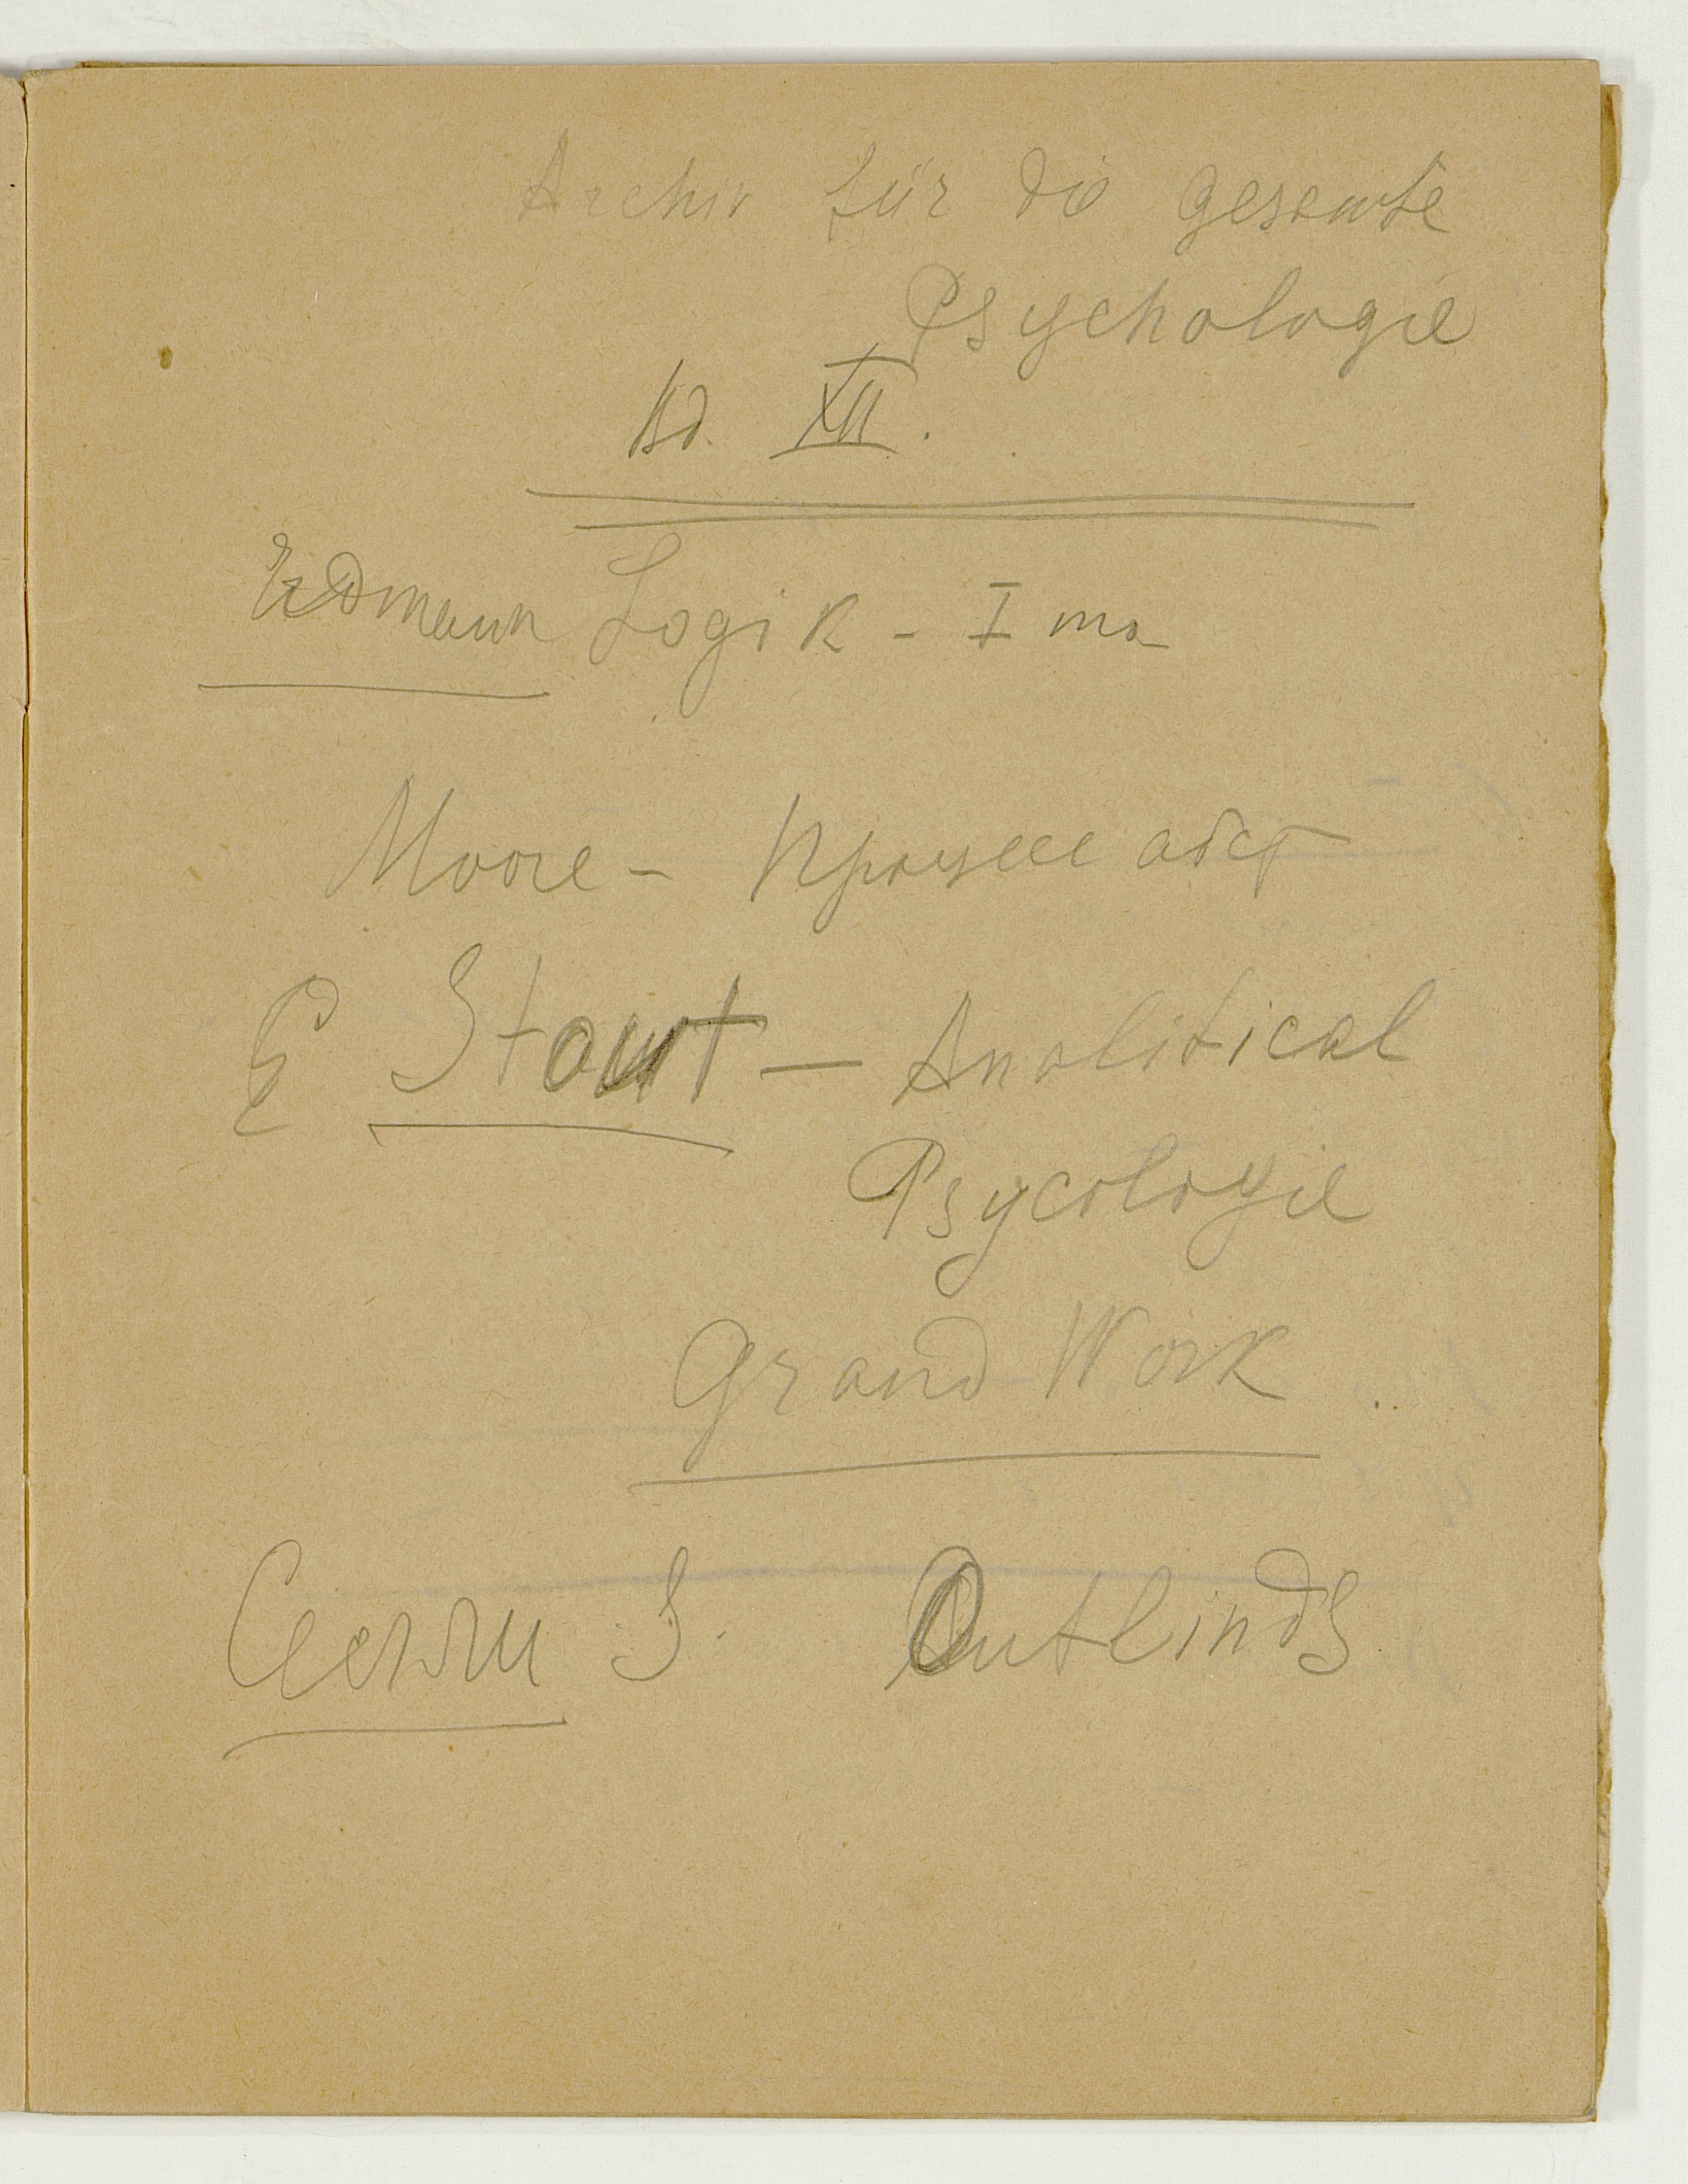 Archiv für die gesamte
Psychologie
Bd. XII.
Erdmann Logik - I
Moore - Процесс абст
Stout — Analitical
Psycologie
Grand Work
Селли S. Outlinds